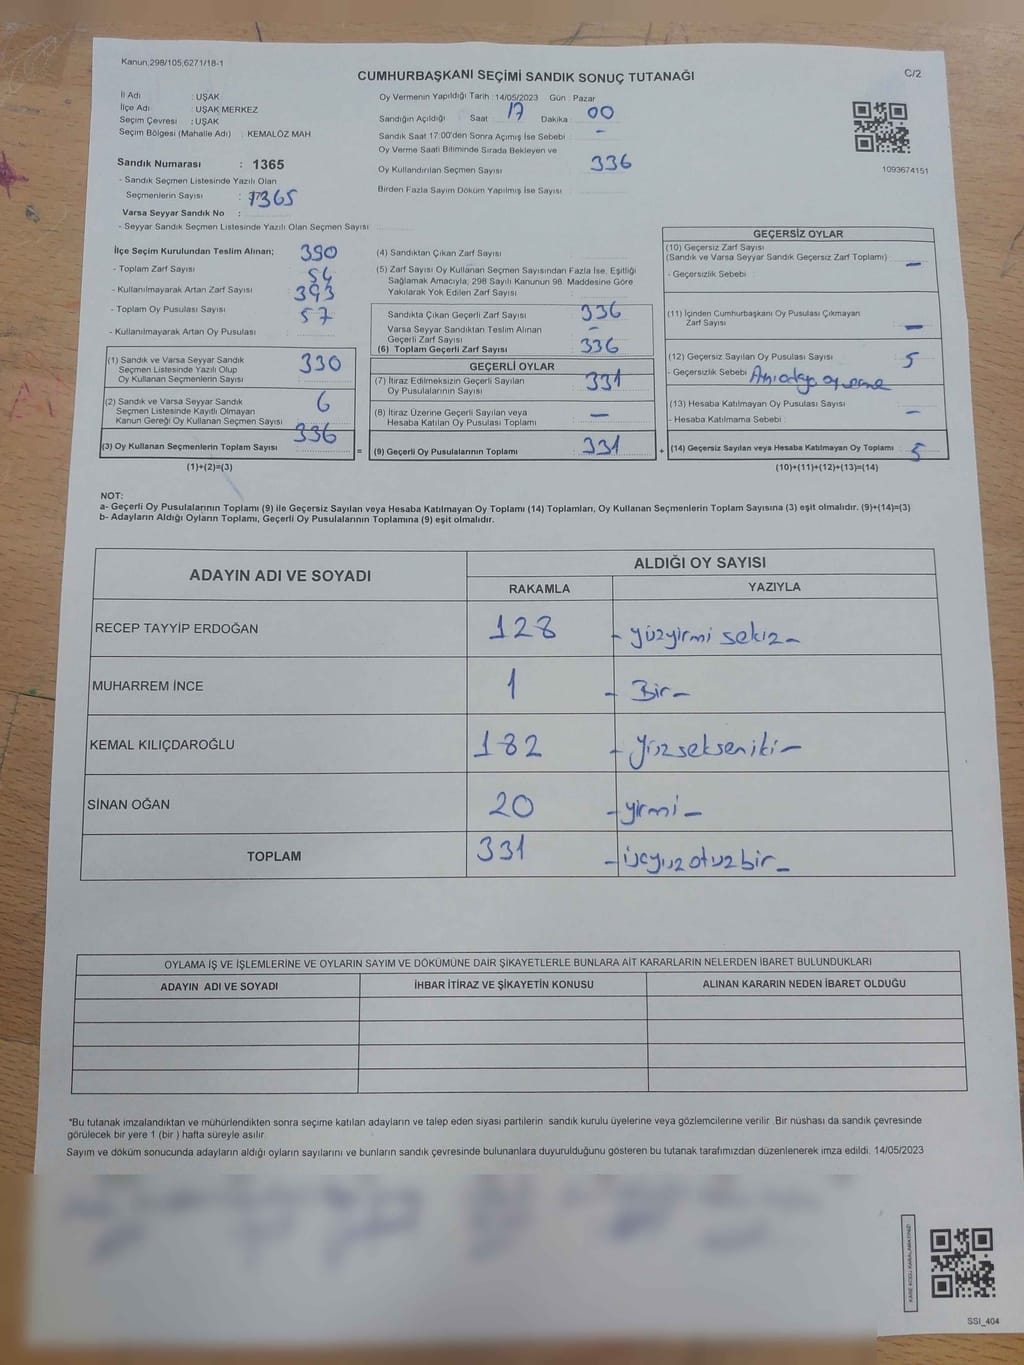 Kanun;298/105,6271/18-1
CUMHURBAŞKANI SEÇİMİ SANDIK SONUÇ TUTANAĞI
C/2
İl Adı : UŞAK
İlçe Adı : UŞAK MERKEZ
Seçim Çevresi : UŞAK
Seçim Bölgesi (Mahalle Adı) : KEMALÖZ MAH
Sandık Numarası : 1365
- Sandık Seçmen Listesinde Yazılı Olan
Seçmenlerin Sayısı : 1365
Varsa Seyyar Sandık No :
- Seyyar Sandık Seçmen Listesinde Yazılı Olan Seçmen Sayısı
Oy Vermenin Yapıldığı Tarih : 14/05/2023 Gün : Pazar
Sandığın Açıldığı Saat 17 Dakika : 00
Sandık Saat 17:00'den Sonra Açımış İse Sebebi : -
Oy Verme Saati Bitiminde Sırada Bekleyen ve
Oy Kullandırılan Seçmen Sayısı 336
Birden Fazla Sayım Döküm Yapılmış İse Sayısı :
1093674151
İlçe Seçim Kurulundan Teslim Alınan; 390
- Toplam Zarf Sayısı : 54
- Kullanılmayarak Artan Zarf Sayısı : 393
- Toplam Oy Pusulası Sayısı : 57
- Kullanılmayarak Artan Oy Pusulası :
(1) Sandık ve Varsa Seyyar Sandık
Seçmen Listesinde Yazılı Olup
Oy Kullanan Seçmenlerin Sayısı
330
(2) Sandık ve Varsa Seyyar Sandık
Seçmen Listesinde Kayıtlı Olmayan
Kanun Gereği Oy Kullanan Seçmen Sayısı
6
(3) Oy Kullanan Seçmenlerin Toplam Sayısı 336
(1)+(2)=(3)
=
(4) Sandıktan Çıkan Zarf Sayısı :
(5) Zarf Sayısı Oy Kullanan Seçmen Sayısından Fazla İse, Eşitliği
Sağlamak Amacıyla; 298 Sayılı Kanunun 98. Maddesine Göre
Yakılarak Yok Edilen Zarf Sayısı :
Sandıkta Çıkan Geçerli Zarf Sayısı : 336
Varsa Seyyar Sandıktan Teslim Alınan
Geçerli Zarf Sayısı : -
(6) Toplam Geçerli Zarf Sayısı : 336
GEÇERLİ OYLAR
(7) İtiraz Edilmeksizin Geçerli Sayılan
Oy Pusulalarının Sayısı : 331
(8) İtiraz Üzerine Geçerli Sayılan veya
Hesaba Katılan Oy Pusulası Toplamı : -
(9) Geçerli Oy Pusulalarının Toplamı : 331
+
GEÇERSİZ OYLAR
(10) Geçersiz Zarf Sayısı
(Sandık ve Varsa Seyyar Sandık Geçersiz Zarf Toplamı) : -
- Geçersizlik Sebebi :
(11) İçinden Cumhurbaşkanı Oy Pusulası Çıkmayan
Zarf Sayısı : -
(12) Geçersiz Sayılan Oy Pusulası Sayısı : 5
- Geçersizlik Sebebi :
(13) Hesaba Katılmayan Oy Pusulası Sayısı : -
- Hesaba Katılmama Sebebi :
(14) Geçersiz Sayılan veya Hesaba Katılmayan Oy Toplamı : 5
(10)+(11)+(12)+(13)=(14)
NOT:
a- Geçerli Oy Pusulalarının Toplamı (9) ile Geçersiz Sayılan veya Hesaba Katılmayan Oy Toplamı (14) Toplamları, Oy Kullanan Seçmenlerin Toplam Sayısına (3) eşit olmalıdır. (9)+(14)=(3)
b- Adayların Aldığı Oyların Toplamı, Geçerli Oy Pusulalarının Toplamına (9) eşit olmalıdır.
ADAYIN ADI VE SOYADI
ALDIĞI OY SAYISI
RAKAMLA
YAZIYLA
RECEP TAYYİP ERDOĞAN 128 - yüzyirmi sekiz -
MUHARREM İNCE 1 - Bir -
KEMAL KILIÇDAROĞLU 182 - yüzsekseniki -
SİNAN OĞAN 20 - yirmi -
TOPLAM 331 - üçyüzotuzbir -
OYLAMA İŞ VE İŞLEMLERİNE VE OYLARIN SAYIM VE DÖKÜMÜNE DAİR ŞİKAYETLERLE BUNLARA AİT KARARLARIN NELERDEN İBARET BULUNDUKLARI
ADAYIN ADI VE SOYADI
İHBAR İTİRAZ VE ŞİKAYETİN KONUSU
ALINAN KARARIN NEDEN İBARET OLDUĞU
*Bu tutanak imzalandıktan ve mühürlendikten sonra seçime katılan adayların ve talep eden siyasi partilerin sandık kurulu üyelerine veya gözlemcilerine verilir. Bir nüshası da sandık çevresinde
görülecek bir yere 1 (bir ) hafta süreyle asılır.
Sayım ve döküm sonucunda adayların aldığı oyların sayılarını ve bunların sandık çevresinde bulunanlara duyurulduğunu gösteren bu tutanak tarafımızdan düzenlenerek imza edildi. 14/05/2023
KARE KODU KARALAMAYINIZ!
SSI_404